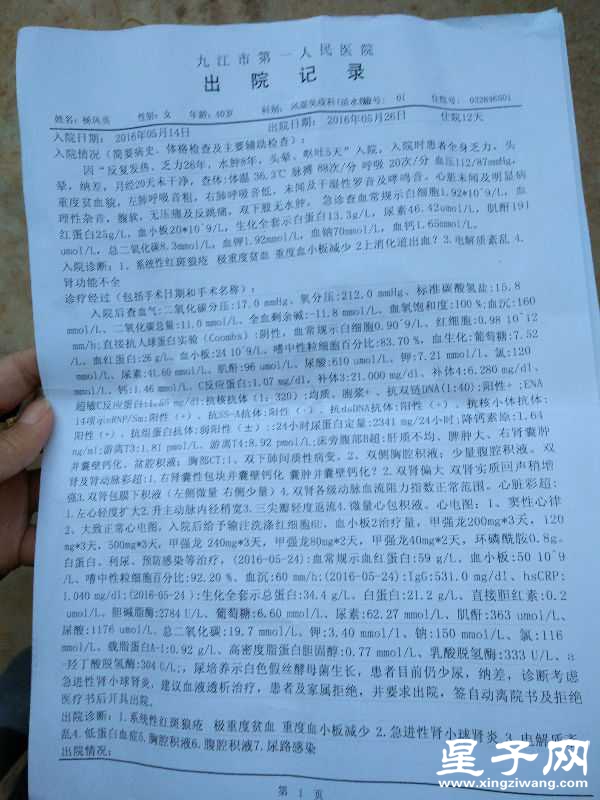 九江市第一人民医院
出院记录
姓名: 性别: 女 年龄: 40岁 科别: 风湿免疫科 01 住院号: 032896501
入院日期: 2016年05月14日 出院日期: 2016年05月26日 住院12天
入院情况(简要病史、体格检查及主要辅助检查):
因“反复发热、乏力26年,水肿8年,头晕、呕吐5天”入院,入院时患者全身乏力,头
晕,纳差,月经20天未干净,查体:体温 36.3℃ 脉搏 88次/分 呼吸 20次/分 血压112/87mmHg,
重度贫血貌,左肺呼吸音粗,右肺呼吸音低,未闻及干湿性罗音及哮鸣音。心脏未闻及明显病
理性杂音,腹软,无压痛及反跳痛,双下肢无水肿。 急诊查血常规示白细胞1.92*10^9/L,血
红蛋白25g/L,血小板20*10^9/L,生化全套示白蛋白13.3g/L,尿素46.42umol/L,肌酐191
umol/L,总二氧化碳8.3mmol/L,血钾1.92mmol/L,血钠70mmol/L,血钙1.65mmol/L。
入院诊断:1、系统性红斑狼疮 极重度贫血 重度血小板减少 2上消化道出血?3.电解质紊乱 4.
肾功能不全
诊疗经过(包括手术日期和手术名称):
入院后查血气:二氧化碳分压:17.0 mmHg、氧分压:212.0 mmHg、标准碳酸氢盐:15.8
mmol/L、二氧化碳总量:11.0 mmol/L、全血剩余碱:-11.8 mmol/L、血氧饱和度:100 %;血沉:160
mm/h;直接抗人球蛋白实验(Coombs):阴性,血常规示白细胞:0.90*10^9/L、红细胞:0.98 10^12
/L、血红蛋白:26 g/L、血小板:24 10^9/L、嗜中性粒细胞百分比:83.70 %,血生化:葡萄糖:7.52
mmol/L、尿素:41.60 mmol/L、肌酐:96 umol/L、尿酸:610 umol/L、钾:7.21 mmol/L、氯:120
mmol/L、钙:1.46 mmol/L、C反应蛋白:1.07 mg/dl、补体3:21.000 mg/dl、补体4:6.280 mg/dl、
超敏C反应蛋白:1.55 mg/dl:抗核抗体(1:320):均质、胞浆+、抗双链DNA(1:40):阳性+;ENA
14项示nRNP/Sm:阳性(+)、抗SS-A抗体:阳性(+)、抗dsDNA抗体:阳性(+)、抗核小体抗体:
阳性(+)、抗组蛋白抗体:弱阳性(±);24小时尿蛋白定量:2341 mg/24小时;降钙素原:1.64
ng/ml;游离T3:1.81 pmol/L、游离T4:8.92 pmol/L;床旁腹部B超:肝质不均、脾肿大、右肾囊肿
并囊壁钙化、盆腔积液;胸部CT:1、双下肺间质性病变。2、双侧胸腔积液;少量腹腔积液。双
肾及肾动脉彩超:1.右肾囊性包块并囊壁钙化 囊肿并囊壁钙化?2.双肾偏大 双肾实质回声稍增
强3.双肾包膜下积液(左侧微量 右侧少量)4.双肾各级动脉血流阻力指数正常范围。心脏彩超:
1.左心轻度扩大2.升主动脉内径稍宽3.三尖瓣轻度返流4.微量心包积液。心电图:1、窦性心律
2、大致正常心电图,入院后给予输注洗涤红细胞6U,血小板2治疗量,甲强龙200mg*3天,120
mg*3天,500mg*3天,甲强龙 240mg*3天,甲强龙80mg*2天,甲强龙40mg*2天,环磷酰胺0.8g。
白蛋白、利尿、预防感染等治疗,(2016-05-24):血常规示血红蛋白:59 g/L、血小板:50 10^9
/L、嗜中性粒细胞百分比:92.20 %、血沉:60 mm/h;(2016-05-24):IgG:531.0 mg/dl、hsCRP:
1.040 mg/dl;(2016-05-24 ):生化全套示总蛋白:34.4 g/L、白蛋白:21.2 g/L、直接胆红素:0.2
umol/L、胆碱脂酶:2784 U/L、葡萄糖:6.60 mmol/L、尿素:62.27 mmol/L、肌酐:363 umol/L、
尿酸:1176 umol/L、总二氧化碳:19.7 mmol/L、钾:3.40 mmol/L、钠:150 mmol/L、氯:116
mmol/L、载脂蛋白A-1:0.92 g/L、高密度脂蛋白胆固醇:0.77 mmol/L、乳酸脱氢酶:333 U/L、a
-羟丁酸脱氢酶:304 U/L;,尿培养示白色假丝酵母菌生长,患者目前仍少尿,纳差,诊断考虑
急进性肾小球肾炎,建议血液透析治疗,患者及家属拒绝,并要求出院,签自动离院书及拒绝
医疗书后开具出院。
出院诊断:1.系统性红斑狼疮 极重度贫血 重度血小板减少 2.急进性肾小球肾炎 3.电解质紊
乱4.低蛋白血症5.胸腔积液6.腹腔积液7.尿路感染
出院情况:
第 1 页
星子网
www.xingziwang.com